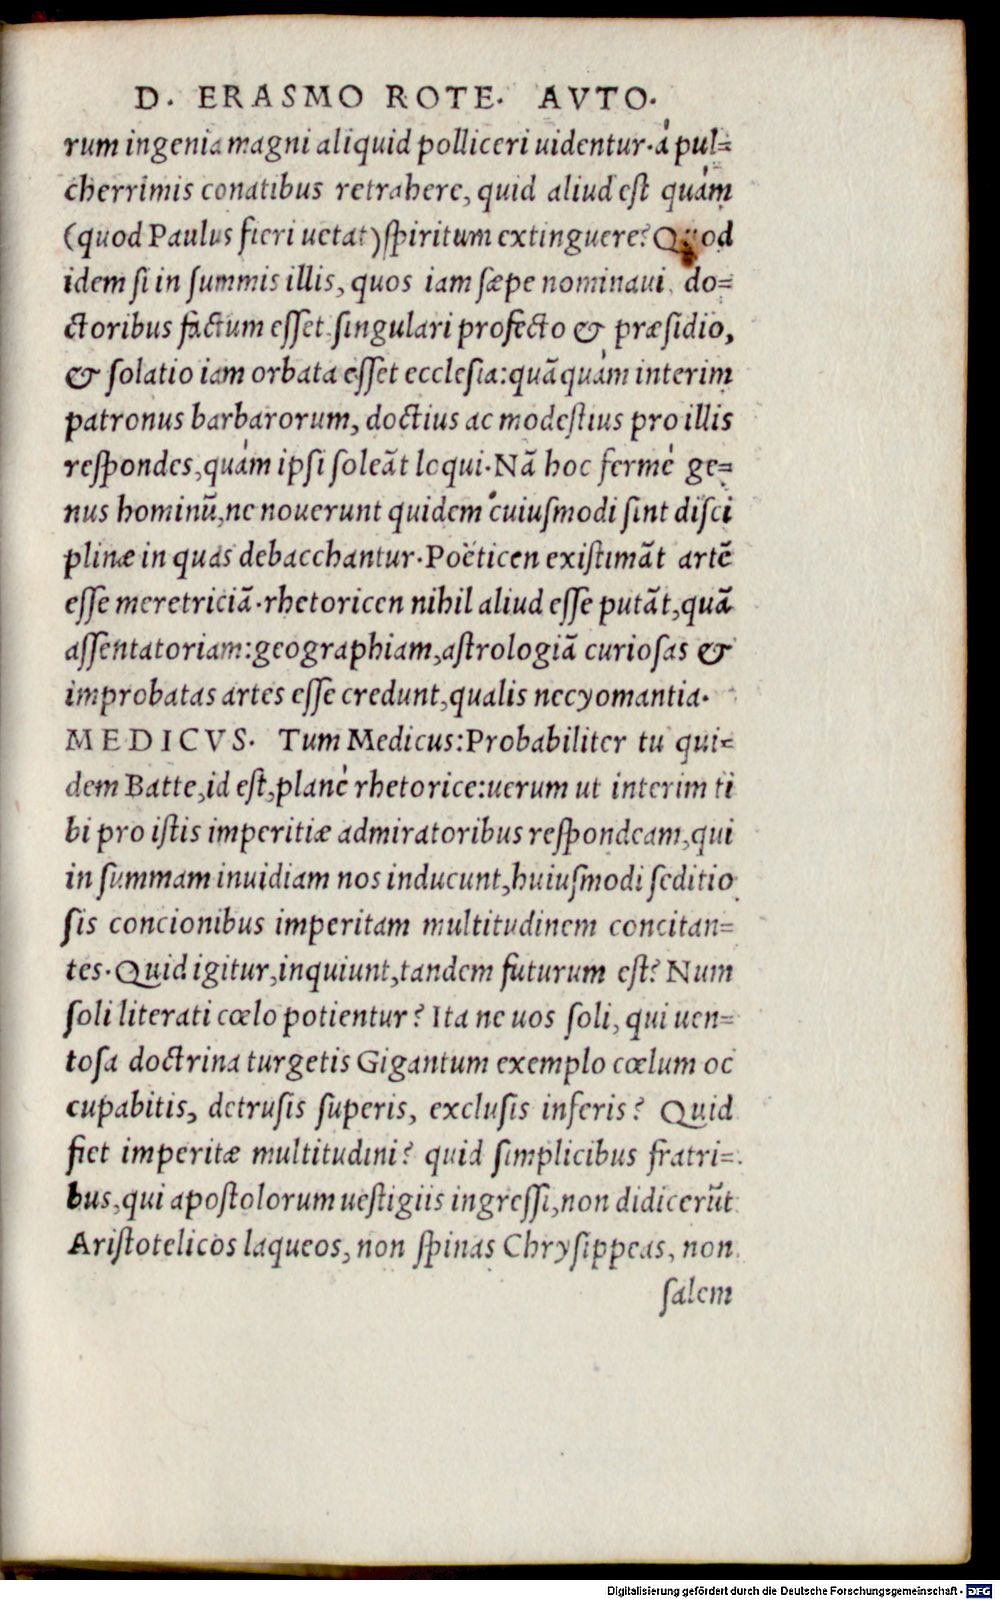 D. ERASMO ROTE. AVTO.
rum ingenia magni aliquid polliceri uidentur. à pul=
cherrimis conatibus retrahere, quid aliud est quàm
(quod Paulus fieri uetat) spiritum extinguere? Quod
idem si in summis illis, quos iam sæpe nominaui, do=
ctoribus factum esset. singulari profecto & præsidio,
& solatio iam orbata esset ecclesia: quāquàm interim
patronus barbarorum, doctius ac modestius pro illis
respondes, quàm ipsi soleāt loqui. Nā hoc fermè ge=
nus hominū, ne nouerunt quidem cuiusmodi sint disci
plinæ in quas debacchantur. Poëticen existimāt artē
esse meretriciā. rhetoricen nihil aliud esse putāt, quā
assentatoriam: geographiam, astrologiā curiosas &
improbatas artes esse credunt, qualis necyomantia.
MEDICVS. Tum Medicus: Probabiliter tu qui=
dem Batte, id est, planè rhetorice: uerum ut interim ti
bi pro istis imperitiæ admiratoribus respondeam, qui
in summam inuidiam nos inducunt, huiusmodi seditio
sis concionibus imperitam multitudinem concitan=
tes. Quid igitur, inquiunt, tandem futurum est? Num
soli literati cœlo potientur? Ita ne uos soli, qui uen=
tosa doctrina turgetis Gigantum exemplo cœlum oc
cupabitis, detrusis superis, exclusis inferis? Quid
fiet imperitæ multitudini? quid simplicibus fratri=
bus, qui apostolorum uestigiis ingressi, non didicerūt
Aristotelicos laqueos, non spinas Chrysippeas, non
salem
Digitalisierung gefördert durch die Deutsche Forschungsgemeinschaft - DFG